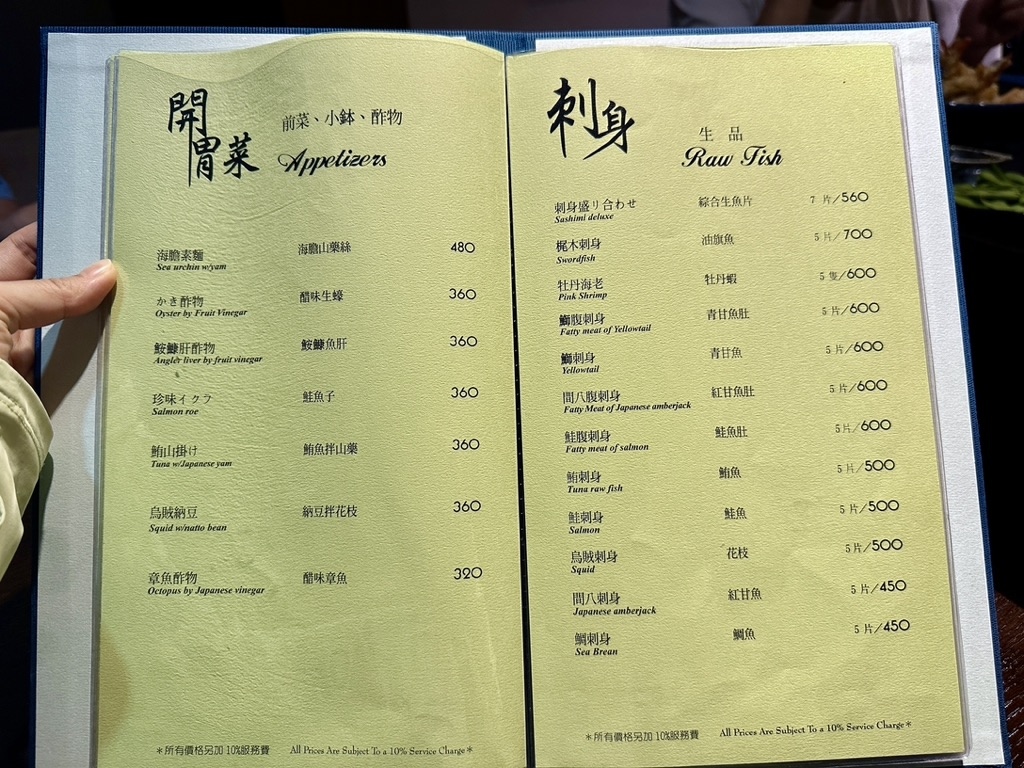 開胃菜
前菜、小鉢、酢物
Appetizers
海膽素麵 海膽山藥絲 480
Sea urchin w/yam
かき酢物 醋味生蠔 360
Oyster by Fruit Vinegar
鮟鱇肝酢物 鮟鱇魚肝 360
Angler liver by fruit vinegar
珍味イクラ 鮭魚子 360
Salmon roe
鮪山掛け 鮪魚拌山藥 360
Tuna w/Japanese yam
烏賊納豆 納豆拌花枝 360
Squid w/natto bean
章魚酢物 醋味章魚 320
Octopus by Japanese vinegar
＊所有價格另加 10%服務費 All Prices Are Subject To a 10% Service Charge＊
刺身
生品
Raw Fish
刺身盛り合わせ 綜合生魚片 7 片/560
Sashimi deluxe
梶木刺身 油旗魚 5 片/700
Swordfish
牡丹海老 牡丹蝦 5 隻/600
Pink Shrimp
鰤腹刺身 青甘魚肚 5 片/600
Fatty meat of Yellowtail
鰤刺身 青甘魚 5 片/600
Yellowtail
間八腹刺身 紅甘魚肚 5 片/600
Fatty Meat of Japanese amberjack
鮭腹刺身 鮭魚肚 5 片/600
Fatty meat of salmon
鮪刺身 鮪魚 5 片/500
Tuna raw fish
鮭刺身 鮭魚 5 片/500
Salmon
烏賊刺身 花枝 5 片/500
Squid
間八刺身 紅甘魚 5 片/450
Japanese amberjack
鯛刺身 鯛魚 5 片/450
Sea Brean
＊所有價格另加 10%服務費 All Prices Are Subject To a 10% Service Charge＊